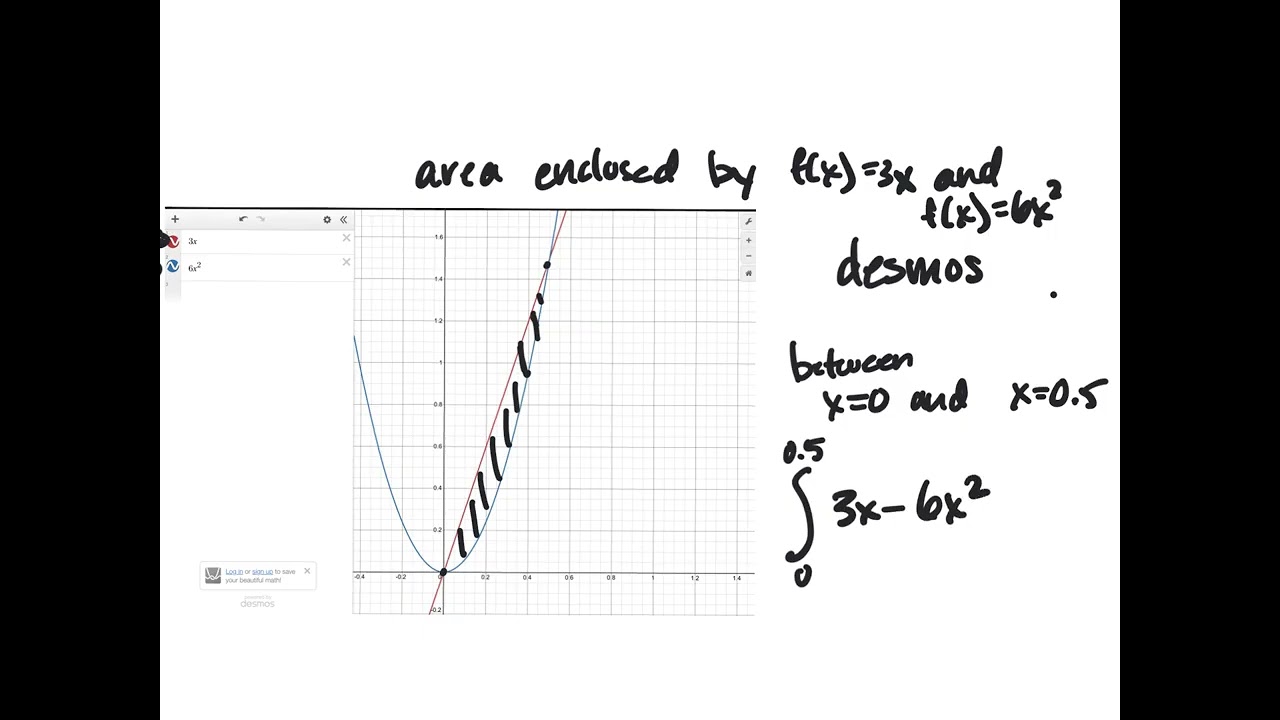 area enclosed by f(x)=3x and
f(x)=6x²
desmos
3x
6x²
between
x=0 and x=0.5
0.5
∫ 3x-6x²
0
1.6
1.4
1.2
1
0.8
0.6
0.4
0.2
-0.4 -0.2 0 0.2 0.4 0.6 0.8 1 1.2 1.4
-0.2
Log in or sign up to save
your beautiful math!
powered by
desmos